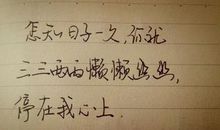 怎知日子一久，你就
三三两两懒懒幽幽，
停在我心上.